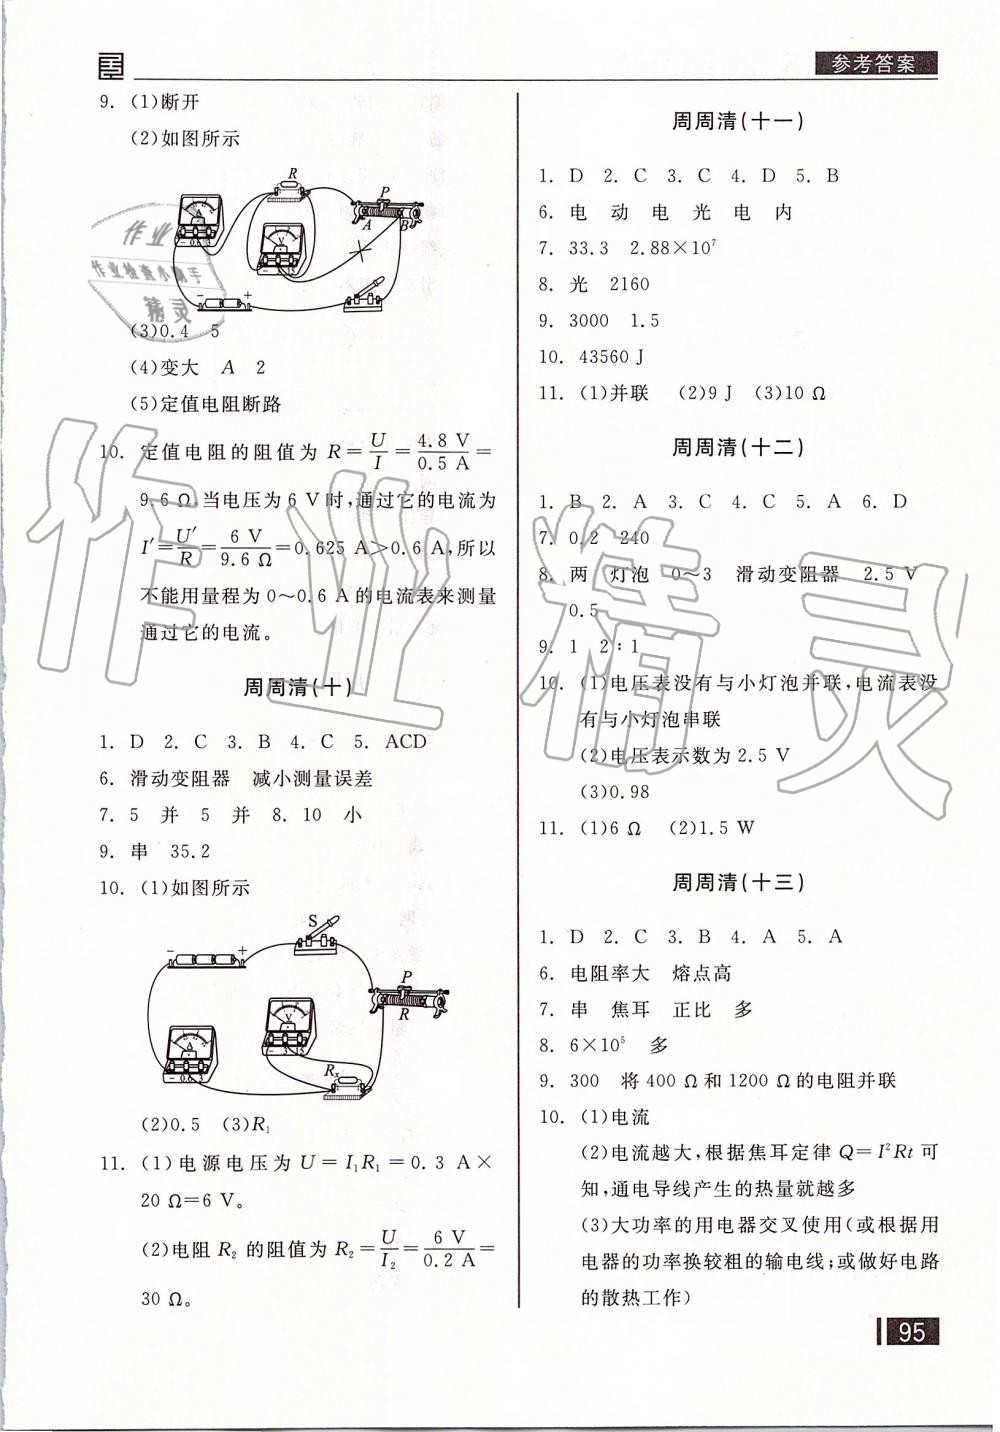 参考答案
9. (1)断开
(2)如图所示
R
P
A
B
A
V
- 0.6 3
- 3 15
- +
(3)0.4 5
(4)变大 A 2
(5)定值电阻断路
10. 定值电阻的阻值为 R=U/I=4.8 V/0.5 A=
9.6 Ω,当电压为 6 V 时,通过它的电流为
I′=U′/R=6 V/9.6 Ω=0.625 A>0.6 A,所以
不能用量程为 0~0.6 A 的电流表来测量
通过它的电流。
周周清(十)
1. D 2. C 3. B 4. C 5. ACD
6. 滑动变阻器 减小测量误差
7. 5 并 5 并 8. 10 小
9. 串 35.2
10. (1)如图所示
S
- +
P
R
V
- 3 15
A
- 0.6 3
Rx
(2)0.5 (3)R₁
11. (1)电源电压为 U=I₁R₁=0.3 A×
20 Ω=6 V。
(2)电阻 R₂ 的阻值为 R₂=U/I₂=6 V/0.2 A=
30 Ω。
周周清(十一)
1. D 2. C 3. C 4. D 5. B
6. 电 动 电 光 电 内
7. 33.3 2.88×10⁷
8. 光 2160
9. 3000 1.5
10. 43560 J
11. (1)并联 (2)9 J (3)10 Ω
周周清(十二)
1. B 2. A 3. C 4. C 5. A 6. D
7. 0.2 240
8. 两 灯泡 0~3 滑动变阻器 2.5 V
0.5
9. 1 2∶1
10. (1)电压表没有与小灯泡并联,电流表没
有与小灯泡串联
(2)电压表示数为 2.5 V
(3)0.98
11. (1)6 Ω (2)1.5 W
周周清(十三)
1. D 2. C 3. B 4. A 5. A
6. 电阻率大 熔点高
7. 串 焦耳 正比 多
8. 6×10⁵ 多
9. 300 将 400 Ω 和 1200 Ω 的电阻并联
10. (1)电流
(2)电流越大,根据焦耳定律 Q=I²Rt 可
知,通电导线产生的热量就越多
(3)大功率的用电器交叉使用(或根据用
电器的功率换较粗的输电线;或做好电路
的散热工作)
95
作业
作业检查小助手
精灵
作业精灵